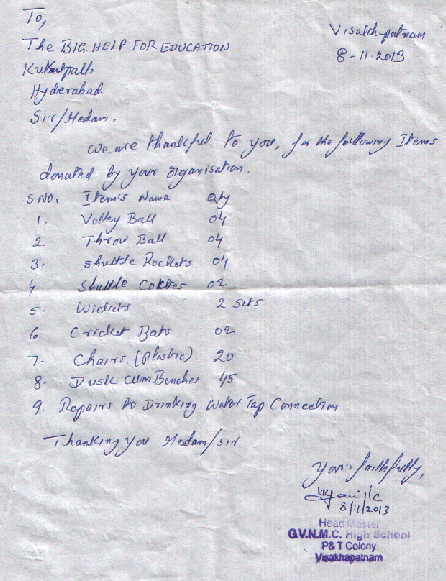 To,
Visakhapatnam
8-11-2013
The BIG HELP FOR EDUCATION
Kukatpally
Hyderabad
Sir/Madam.
We are thankful to you, for the following Items
donated by your organisation.
S.NO. Item's Name Qty
1. Volley Ball 04
2 Throw Ball 04
3. Shuttle Rockets 04
4 Shuttle Cokes 02
5. Wickets 2 Sets
6 Cricket Bats 02
7. Chairs (plastic) 20
8. Dusk Cum Benches 45
9. Repairs to Drinking Water Tap Connection
Thanking you Madam/Sir
Yours faithfully,
8/11/2013
Head Master
G.V.N.M.C. High School
P&T Colony
Visakhapatnam